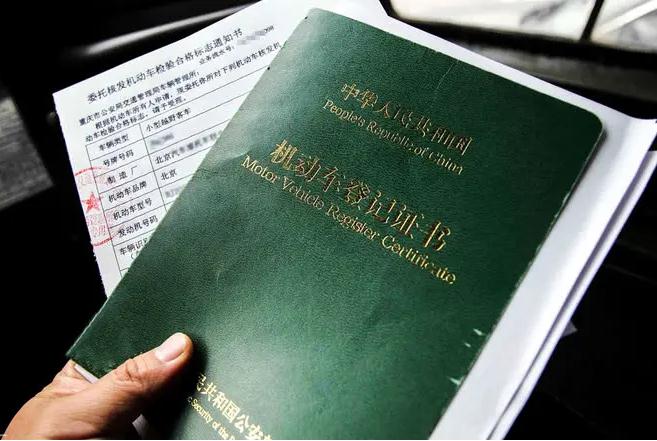 委托核发机动车检验合格标志通知书
业务流水号:
重庆市公安局交通管理局车辆管理所:
根据机动车所有人申请,现委托你所对下列机动车核发机
动车检验合格标志,请予受理。
车辆类型 小型越野客车
号牌号码
制造厂 北京汽车
机动车品牌 北京
机动车型号
发动机号码
车辆识
中华人民共和国
People's Republic of China
机动车登记证书
Motor Vehicle Register Certificate
民共和国公安
Security of the